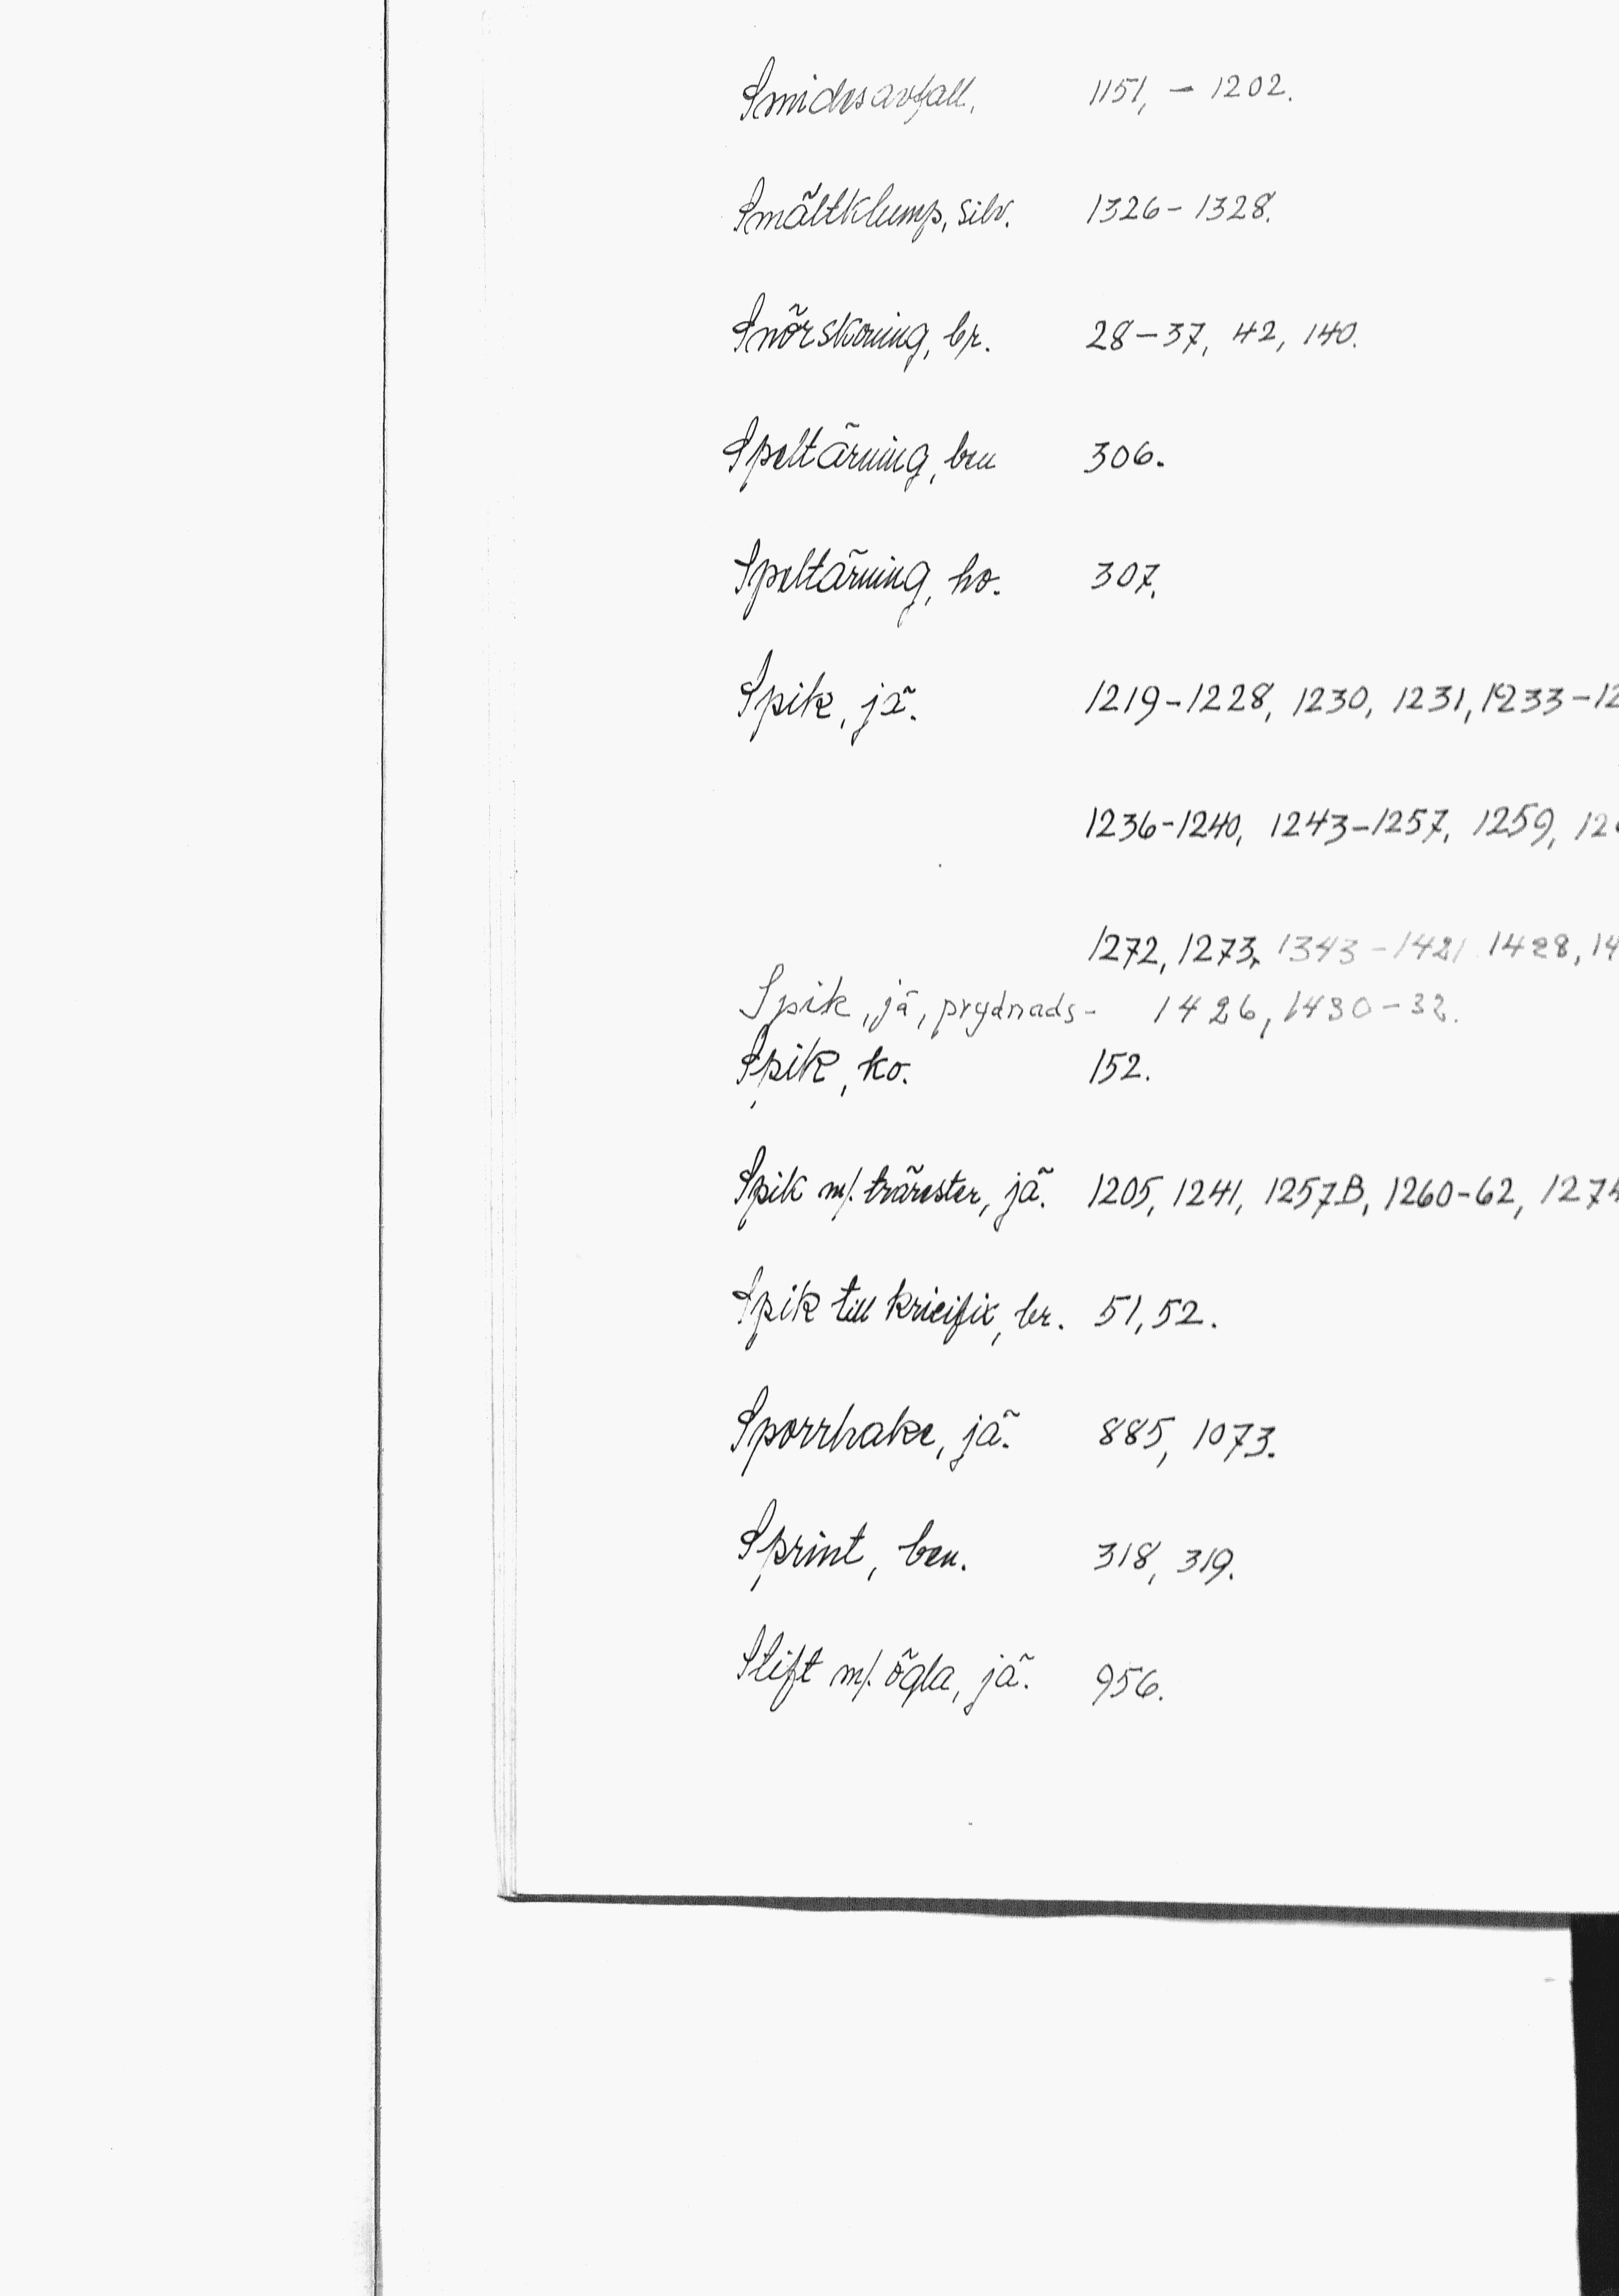 Smidesavfall. 1151, – 1202.
Smältklump, silv. 1326 – 1328.
Snörskoning, br. 28 – 37, 42, 140.
Speltärning, ben 306.
Speltärning, ho. 307.
Spik, jä. 1219 – 1228, 1230, 1231, 1233 – 12
1236 – 1240, 1243 – 1257, 1259, 12
1272, 1273, 1343 – 1421 1428, 14
Spik, jä, prydnads- 1426, 1430 – 32.
Spik, ko. 152.
Spik m/. trärester, jä. 1205, 1241, 1257B, 1260-62, 1274
Spik till kricifix, br. 51, 52.
Sporrhake, jä. 885, 1073.
Sprint, ben. 318, 319.
Stift m/. ögla, jä. 956.